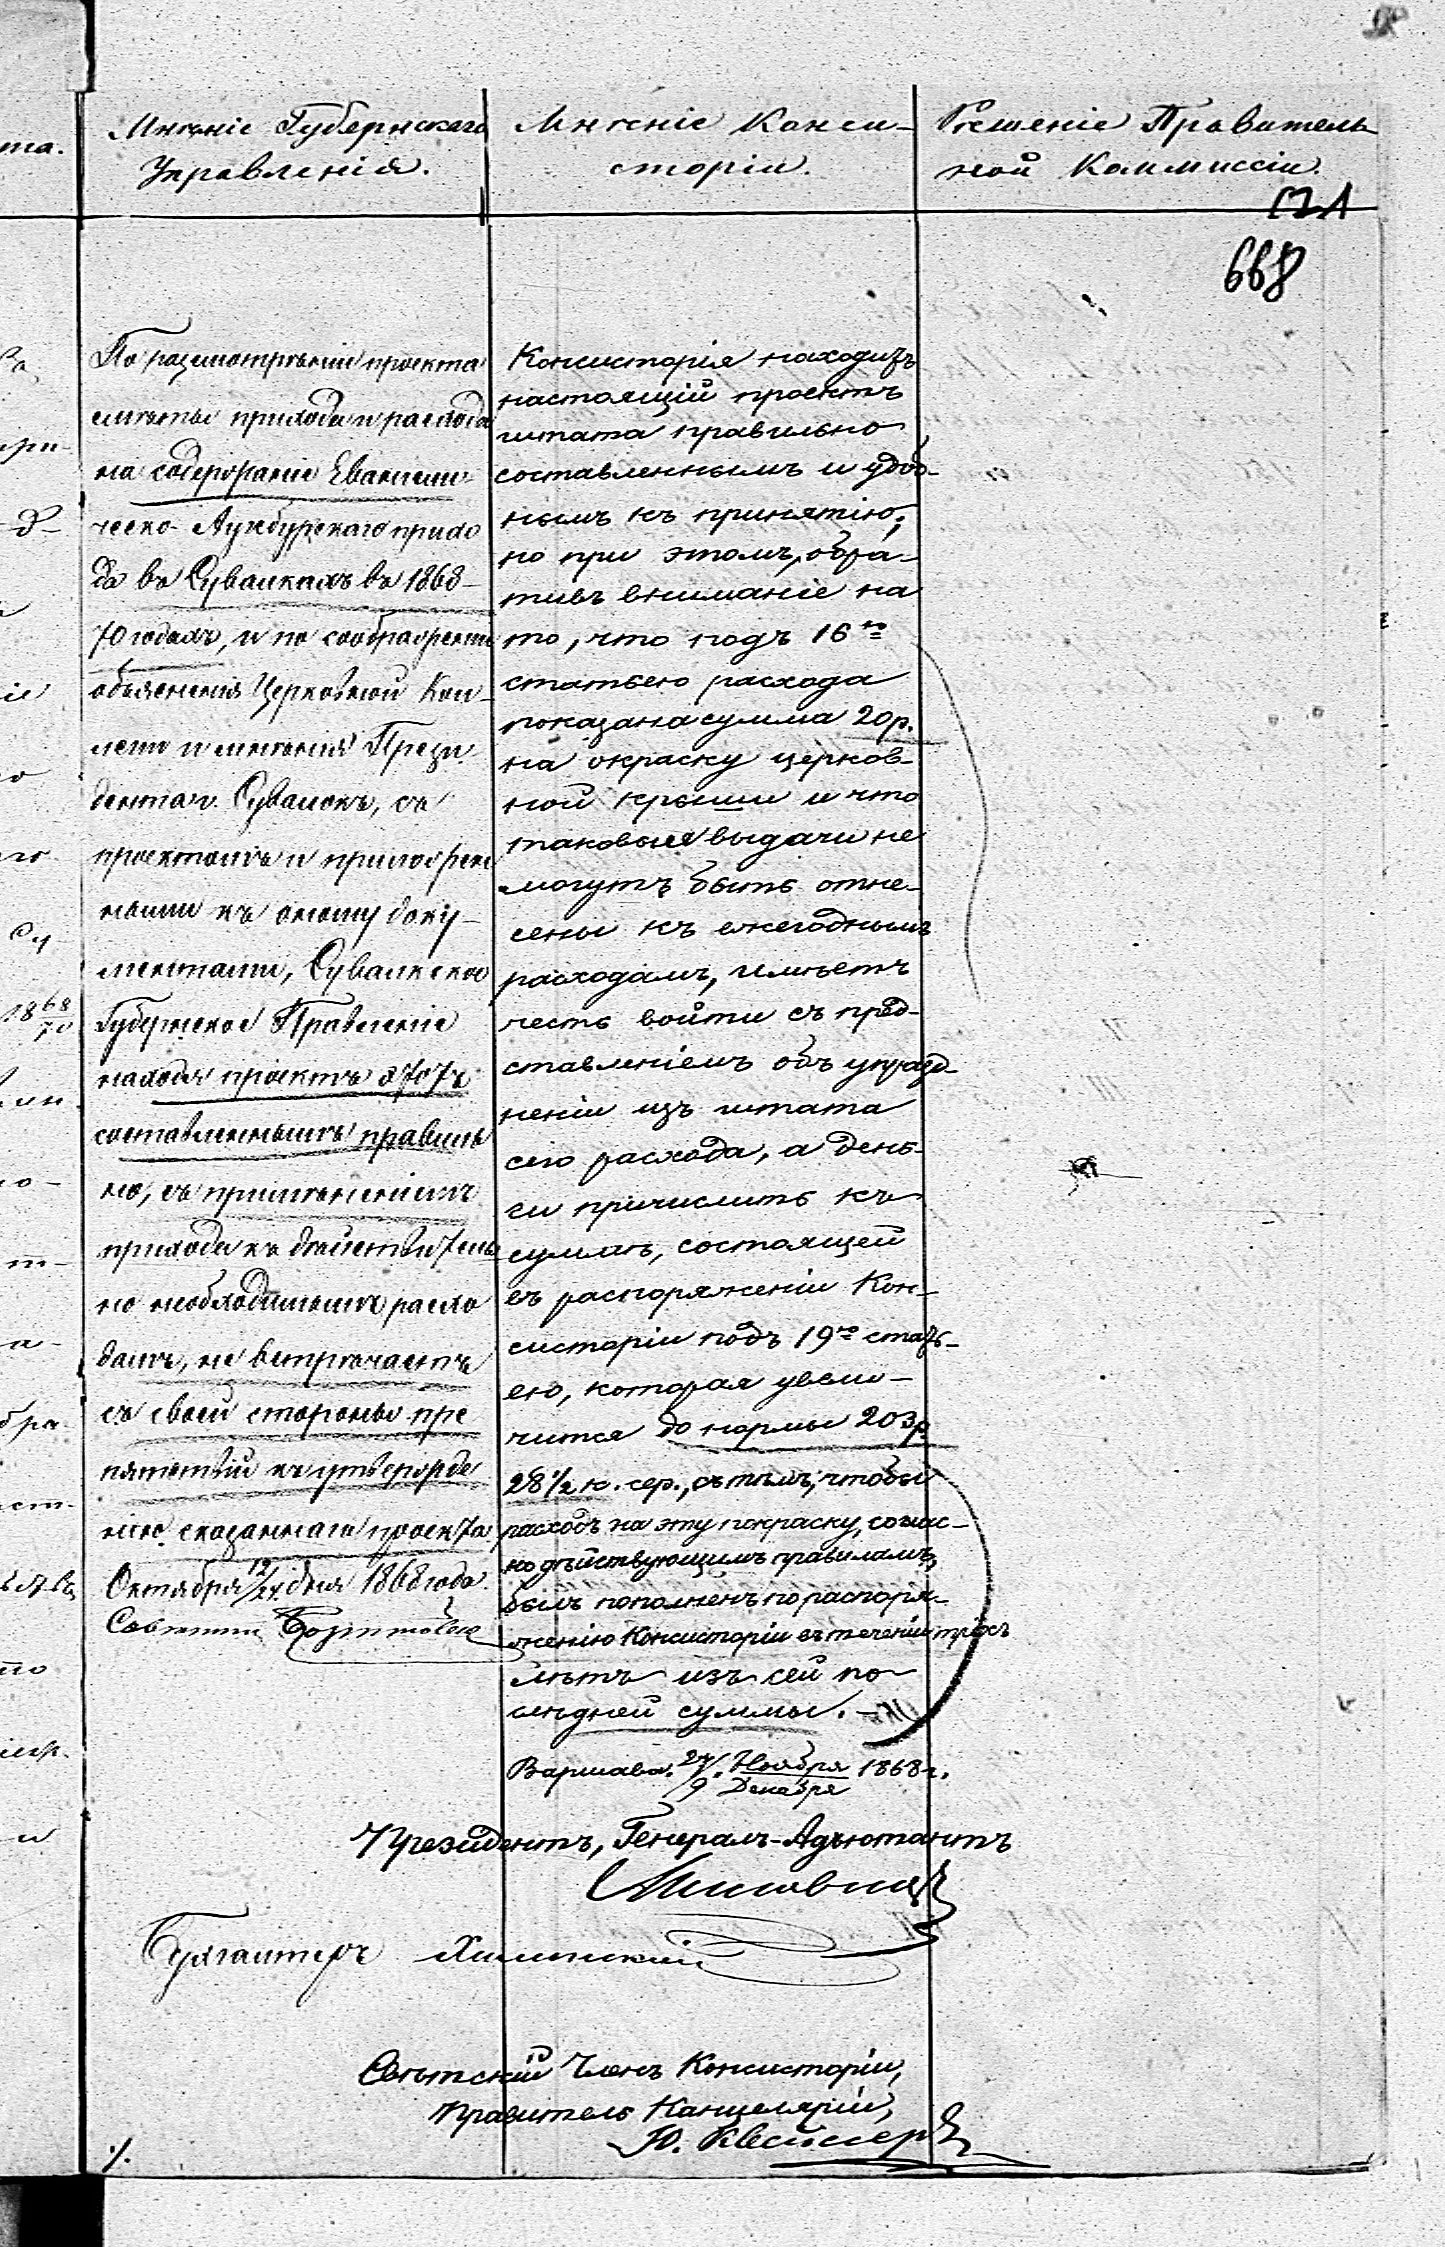 Мнѣніе Губернскаго
Управленія.
Мнѣніе Конси-
сторіи.
Рѣшеніе Правитель-
ной Коммиссіи.
668
По разсмотрѣніи проекта
смѣты прихода и расхода
на содержаніе Евангели-
ческо-Аугсбургскаго прихо
да въ Сувалкахъ въ 1868-
70 годахъ, и по соображеніи
объясненія Церковной Кол-
легіи и мнѣнія Прези
дента г. Сувалокъ, съ
проектомъ и приложен
ными къ оному доку-
ментами, Сувалкское
Губернское Правленіе
находя проектъ этотъ
составленнымъ правиль
но, съ примѣненіемъ
прихода къ дѣйствитель
но необходимымъ расхо
дамъ, не встрѣчаетъ
съ своей стороны пре
пятствій къ утвержде
нію сказаннаго проекта.
Октября 12/24 дня 1868 года.
Совѣтникъ
Консисторія находитъ
настоящій проектъ
штата правильно
составленнымъ и удоб-
нымъ къ принятію;
но при этомъ, обра-
тивъ вниманіе на
то, что подъ 16ю
статьею расхода
показана сумма 20 р.
на окраску церков-
ной крыши и что
таковые выдачи не
могутъ быть отне-
сены къ ежегоднымъ
расходамъ, имѣетъ
честь войти съ пред-
ставленіемъ объ упразд-
неніи изъ штата
сего расхода, а день-
ги причислить къ
суммѣ, состоящей
въ распоряженіи Кон-
систоріи подъ 19ю стать-
ею, которая увели-
чится до нормы 203 р.
28 1/2 к. сер., съ тѣмъ, чтобы
расходъ на эту покраску, соглас-
но дѣйствующимъ правиламъ,
былъ пополненъ по распоря-
женію Консисторіи въ теченіи трехъ
лѣтъ изъ сей по
слѣдней суммы.-
Варшава. 27/9 Ноября/Декабря 1868 г.
Президентъ, Генералъ-Адъютантъ
Бухгалтеръ
Свѣтскій Членъ Консисторіи,
Правитель Канцеляріи,